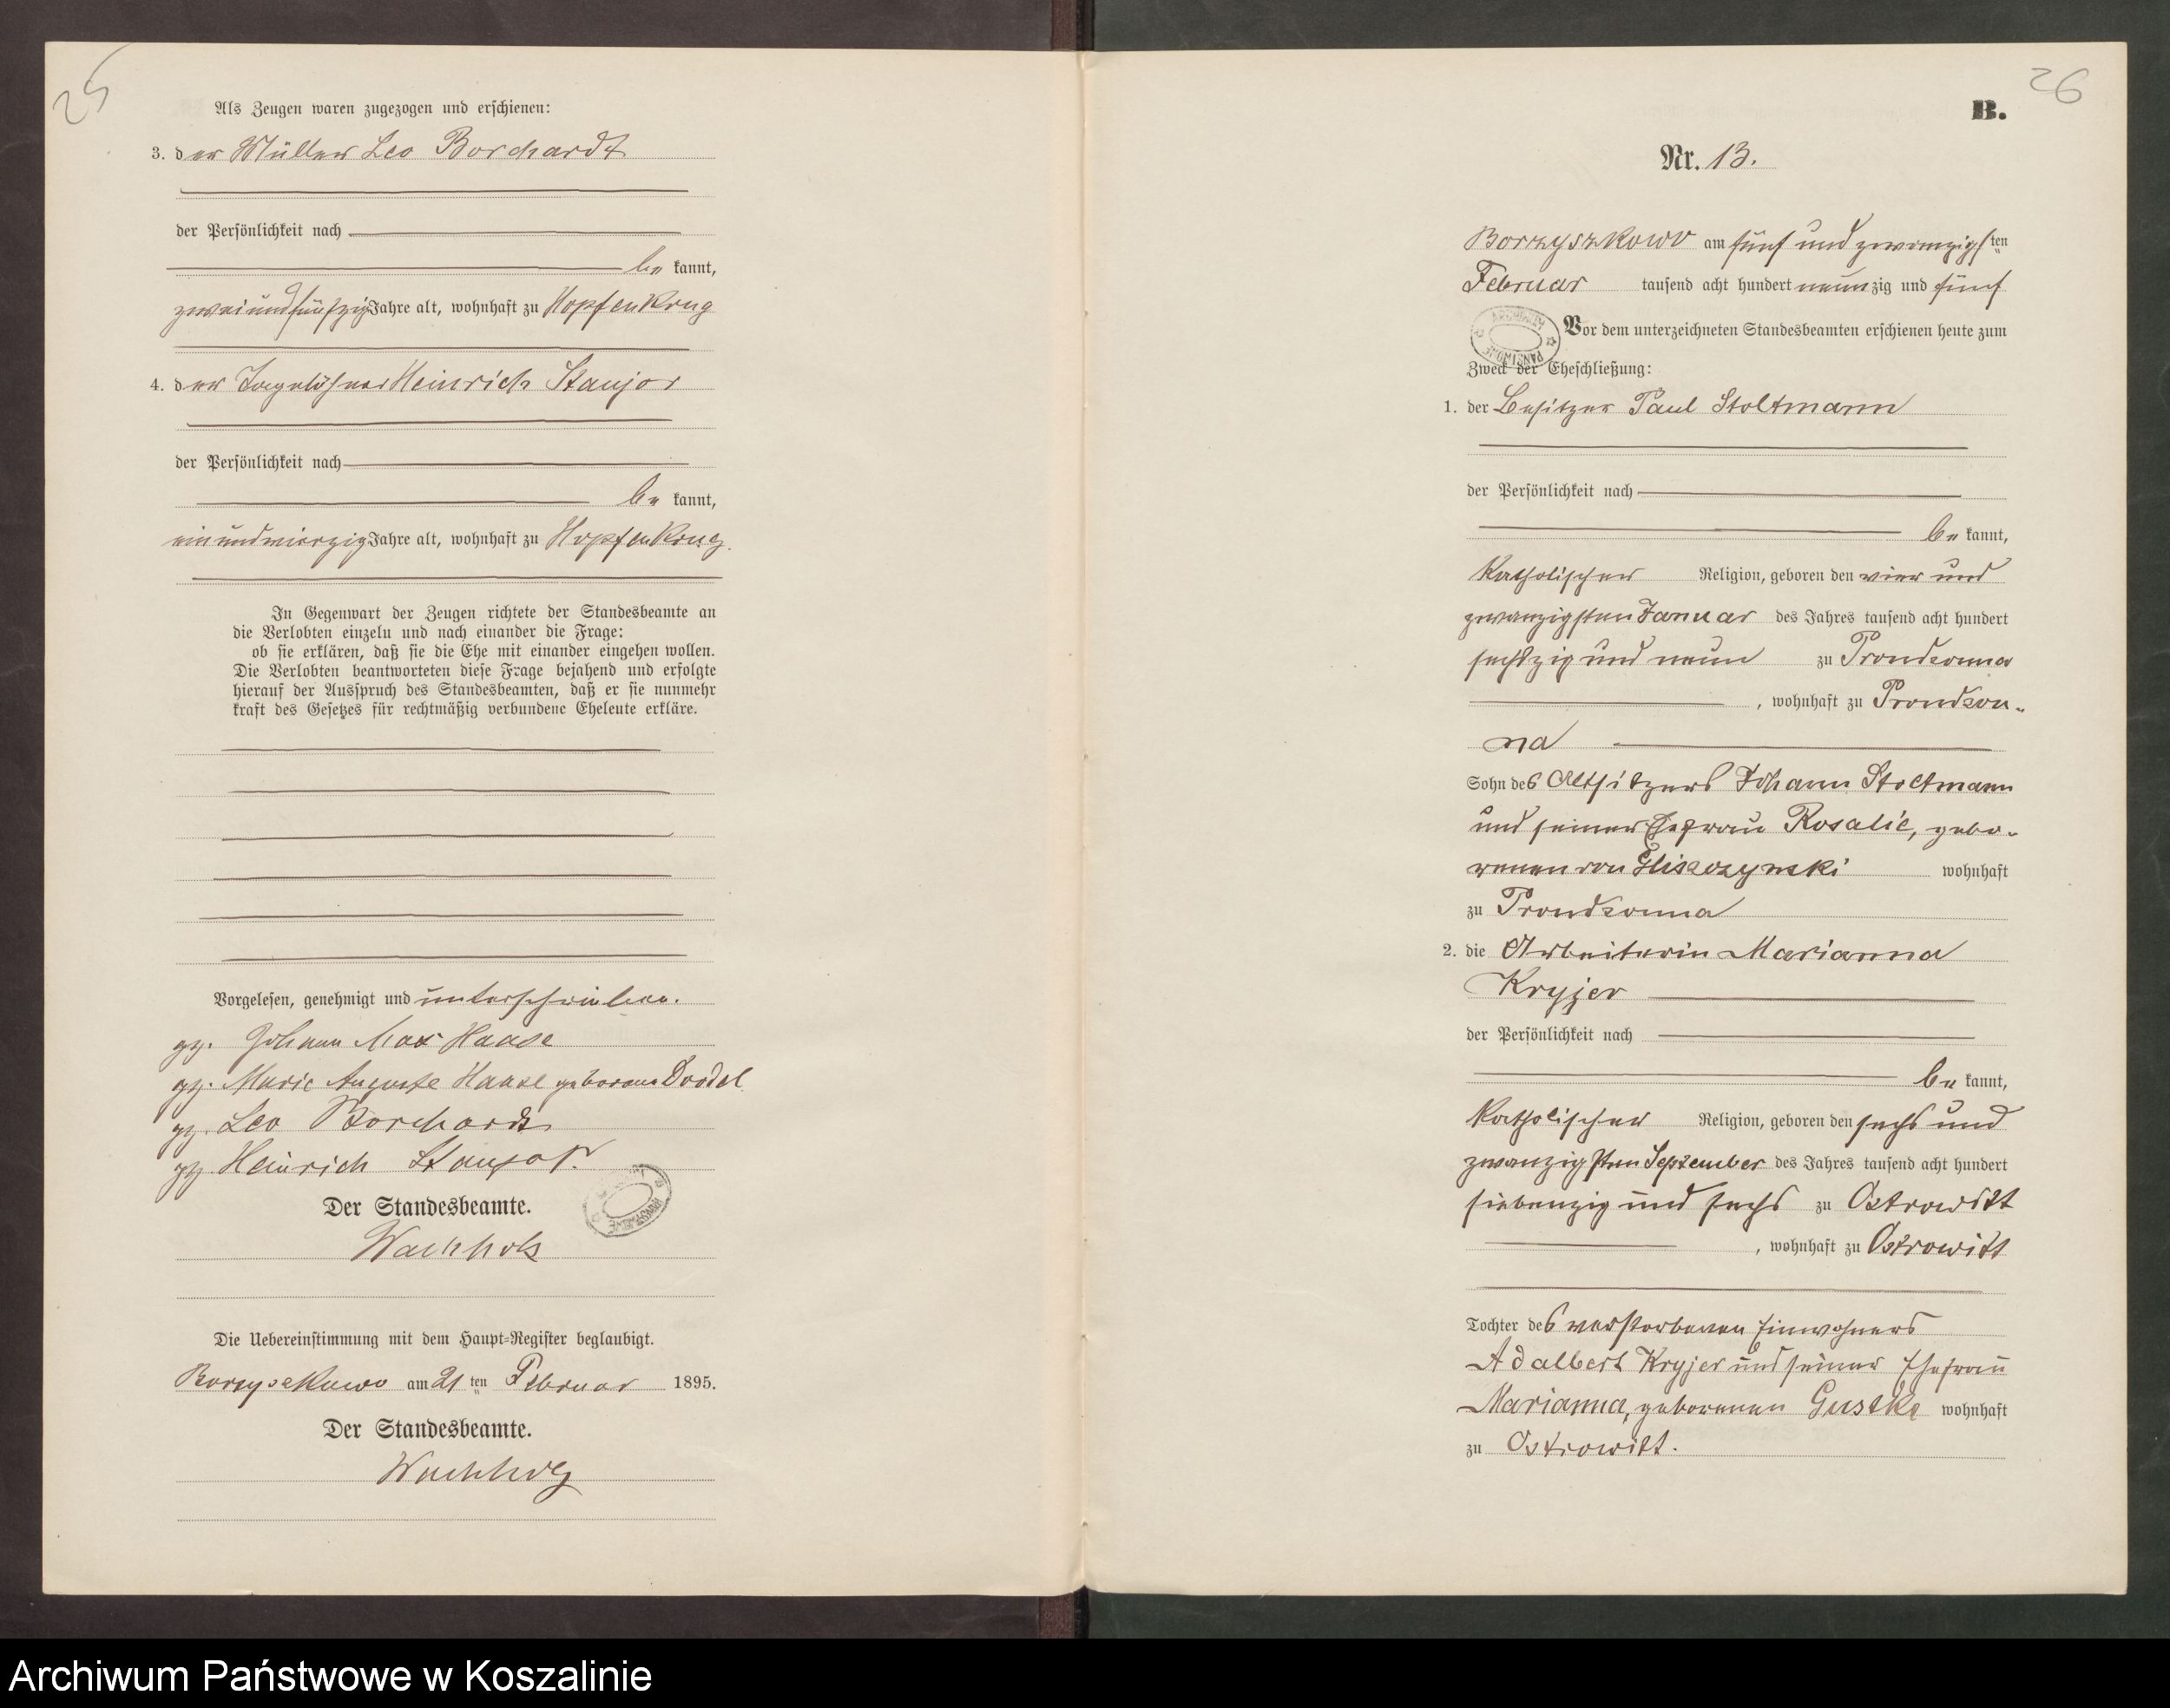 25
Als Zeugen waren zugezogen und erschienen:
3. der Müller Leo Borchardt
der Persönlichkeit nach
be kannt,
zweiundfünfzig Jahre alt, wohnhaft zu Hopfenkrug
4. der Tagelöhner Heinrich Stanjor
der Persönlichkeit nach
be kannt,
einundvierzig Jahre alt, wohnhaft zu Hopfenkrug.
In Gegenwart der Zeugen richtete der Standesbeamte an
die Verlobten einzeln und nach einander die Frage:
ob sie erklären, daß sie die Ehe mit einander eingehen wollen.
Die Verlobten beantworteten diese Frage bejahend und erfolgte
hierauf der Ausspruch des Standesbeamten, daß er sie nunmehr
kraft des Gesetzes für rechtmäßig verbundene Eheleute erkläre.
Vorgelesen, genehmigt und unterschrieben.
gz. Johann Max Haase
gz. Marie Auguste Haase geborene
gz. Leo Borchardt
gz. Heinrich Stanjor.
Der Standesbeamte.
Wachholz
Die Uebereinstimmung mit dem Haupt-Register beglaubigt.
Borzyszkowo am 21 ten Februar 1895.
Der Standesbeamte.
Wachholz
26
B.
Nr. 13.
Borzyszkowo am fünf und zwanzigsten
Februar tausend acht hundert neunzig und fünf
Vor dem unterzeichneten Standesbeamten erschienen heute zum
Zweck der Eheschließung:
1. der Besitzer Paul Stoltmann
der Persönlichkeit nach
be kannt,
Katholischer Religion, geboren den vier und
zwanzigsten Januar des Jahres tausend acht hundert
sechszig und neun zu Prondzonna
, wohnhaft zu Prondzon-
na
Sohn des Altsitzers Johann Stoltmann
und seiner Ehefrau Rosalie, gebo-
renen von Gliszczynski wohnhaft
zu Prondzonna
2. die Arbeiterin Marianna
Kryjer
der Persönlichkeit nach
be kannt,
Katholischer Religion, geboren den sechs und
zwanzigsten September des Jahres tausend acht hundert
siebenzig und sechs zu Ostrowitt
, wohnhaft zu Ostrowitt
Tochter des verstorbenen Einwohners
Adalbert Kryjer und seiner Ehefrau
Marianna, geborenen Gustke wohnhaft
zu Ostrowitt.
Archiwum Państwowe w Koszalinie